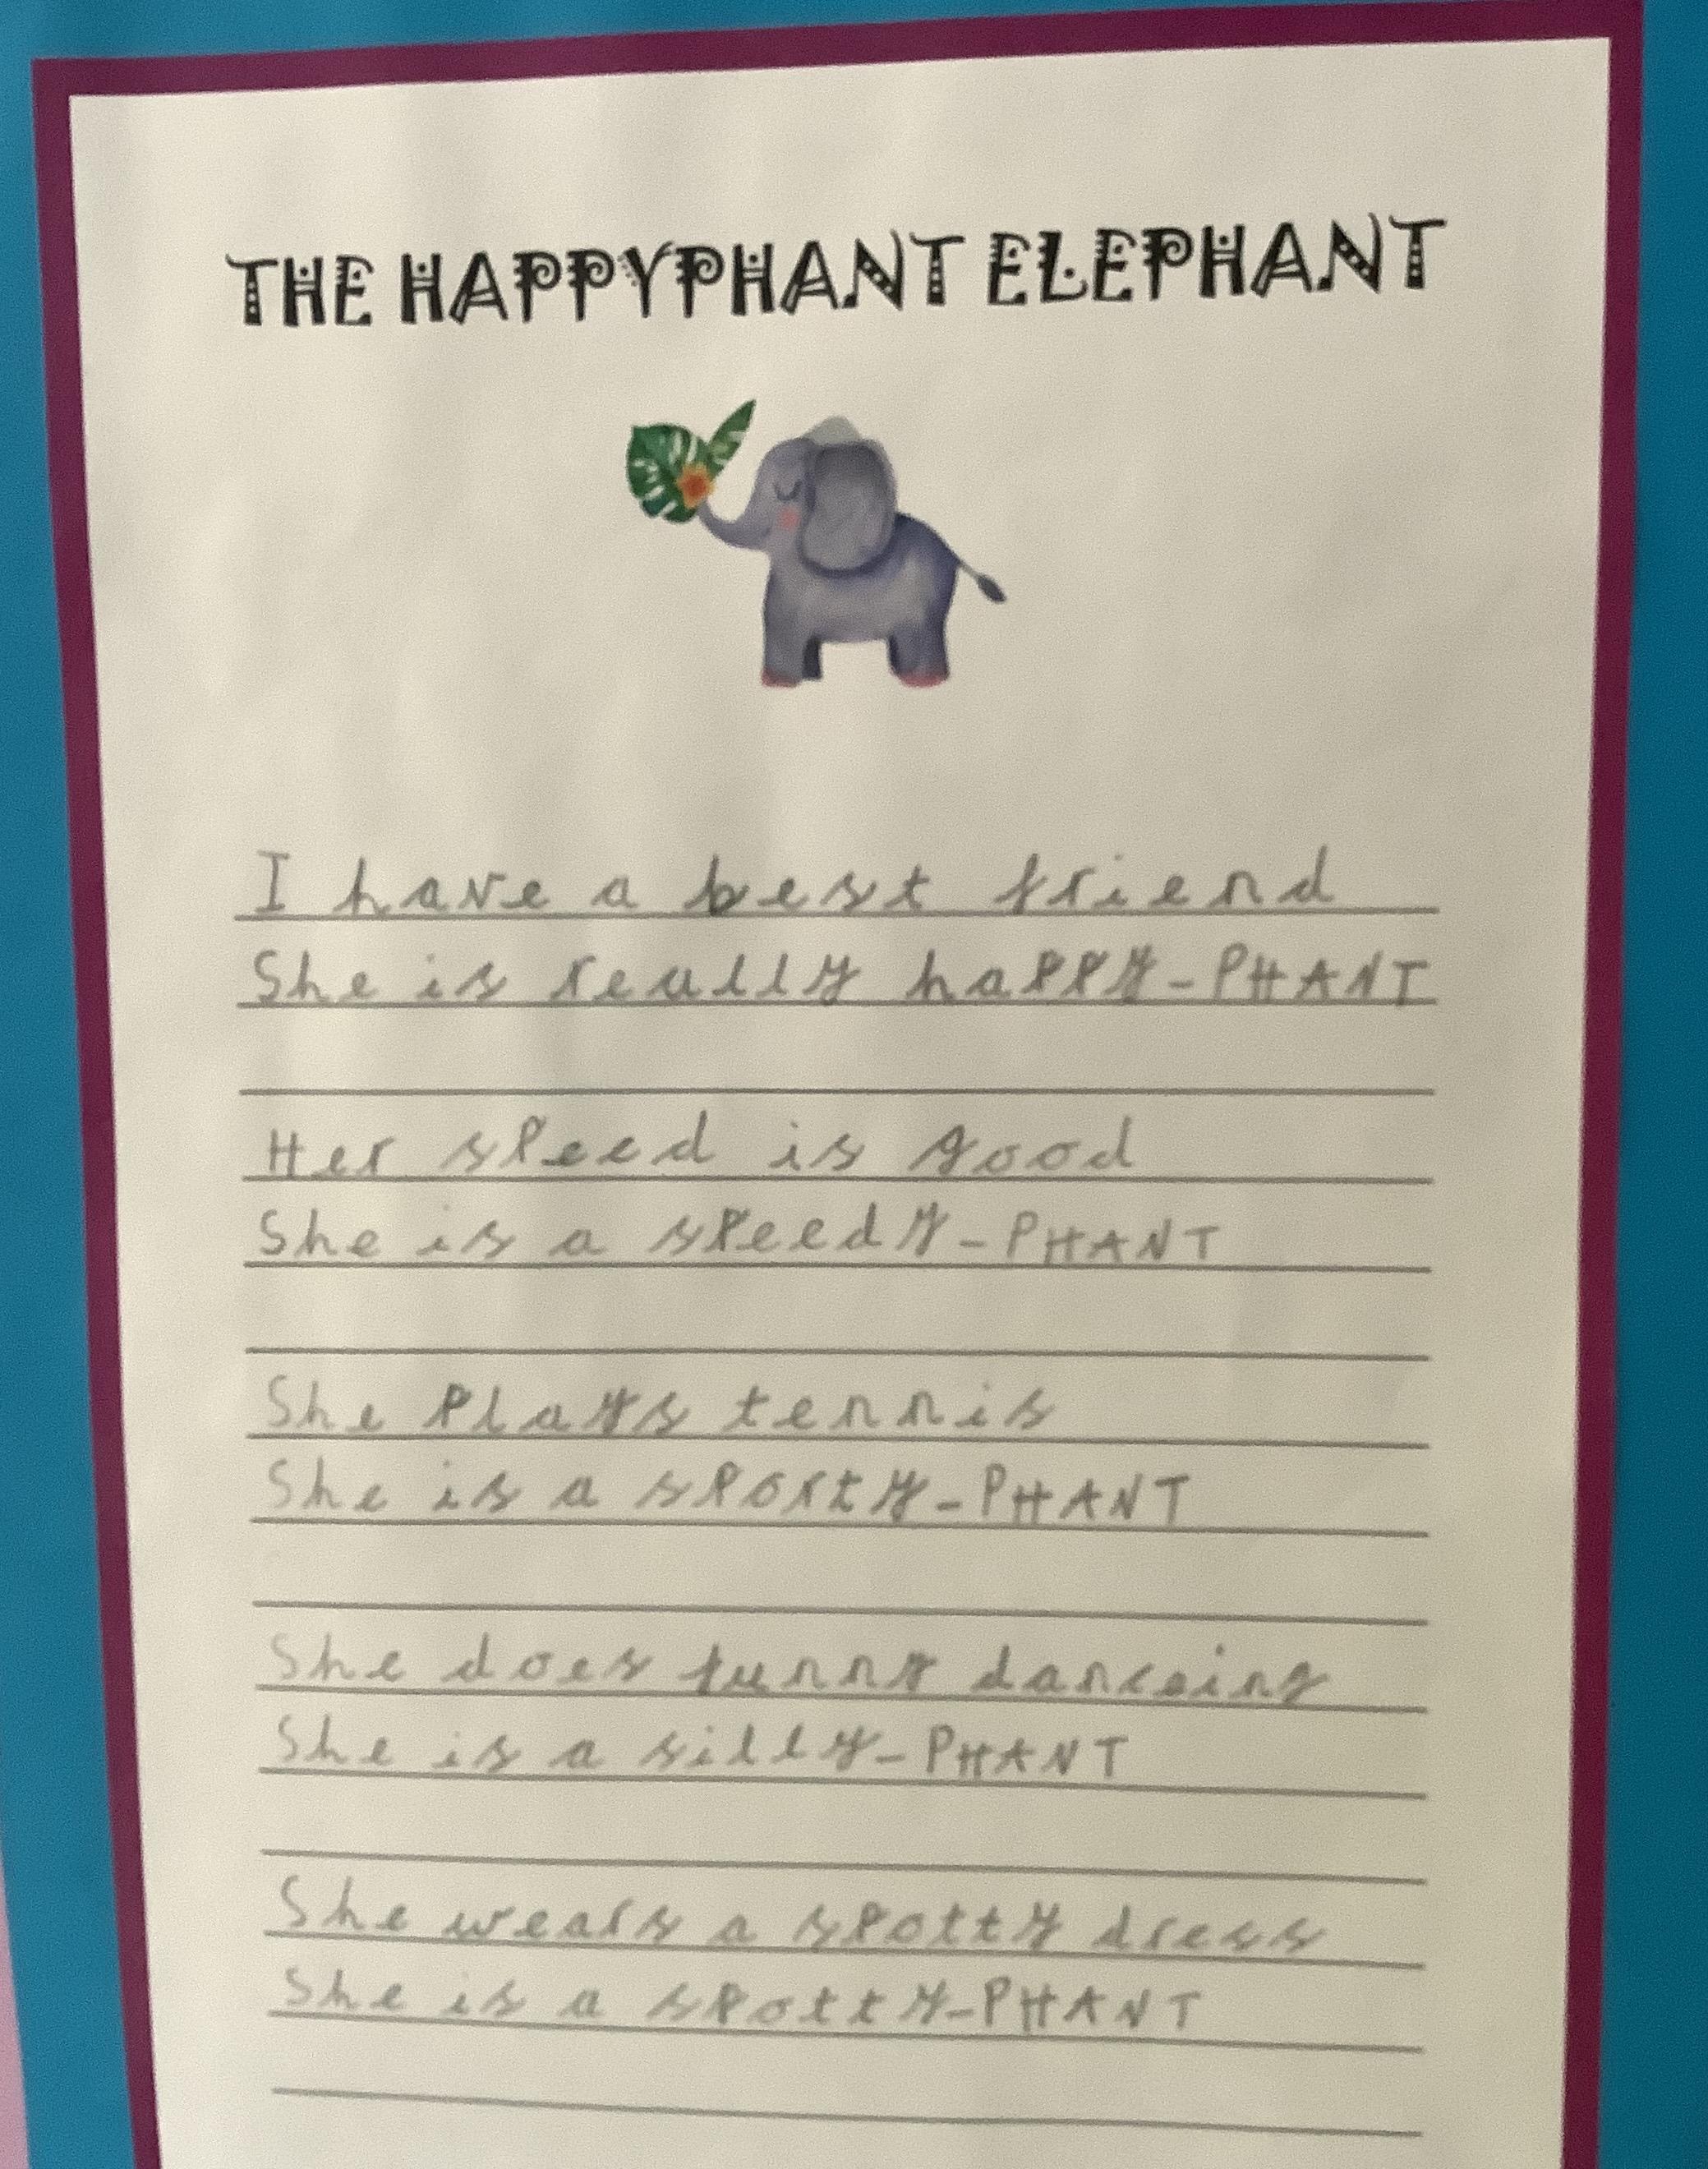 THE HAPPYPHANT ELEPHANT
I have a best friend
She is really happy-PHANT
Her speed is good
She is a speedy-PHANT
She plays tennis
She is a sporty-PHANT
She does funny danceing
She is a silly-PHANT
She wears a spotty dress
She is a spotty-PHANT